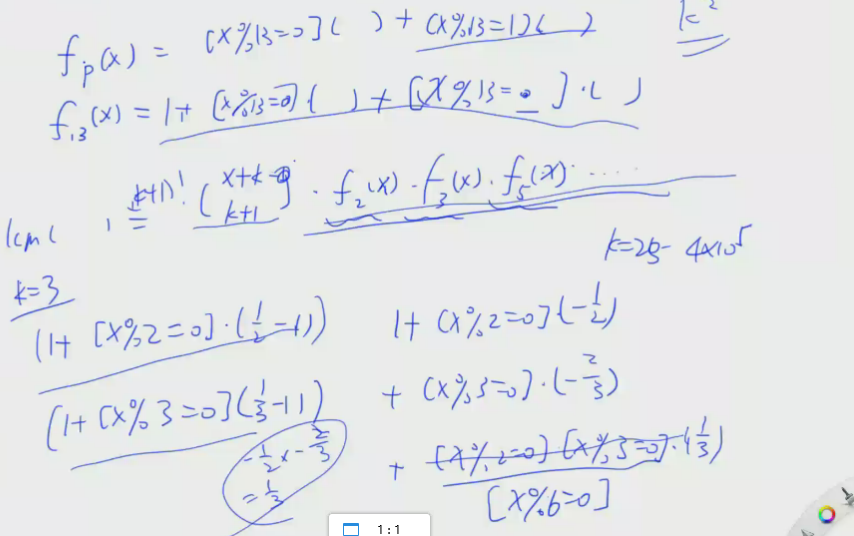 f_p(x) = [x%13=0]( ) + (x%13=1)( ) k²
f_13(x) = 1+ [x%13=0]( ) + [x%13= ]·( )
lcm( ) = (k+1)! (x+k k+1) · f_2(x) · f_3(x) · f_5(x) ·····
k=28 4×10^5
k=3
(1+ [x%2=0]·(1/2 -1)) 1+ [x%2=0](-1/2)
(1+ [x%3=0](1/3 -1)) + [x%3=0]·(-2/3)
-1/2 × -2/3 = 1/3 + [x%2=0][x%3=0]·(1/3)
[x%6=0]
1:1